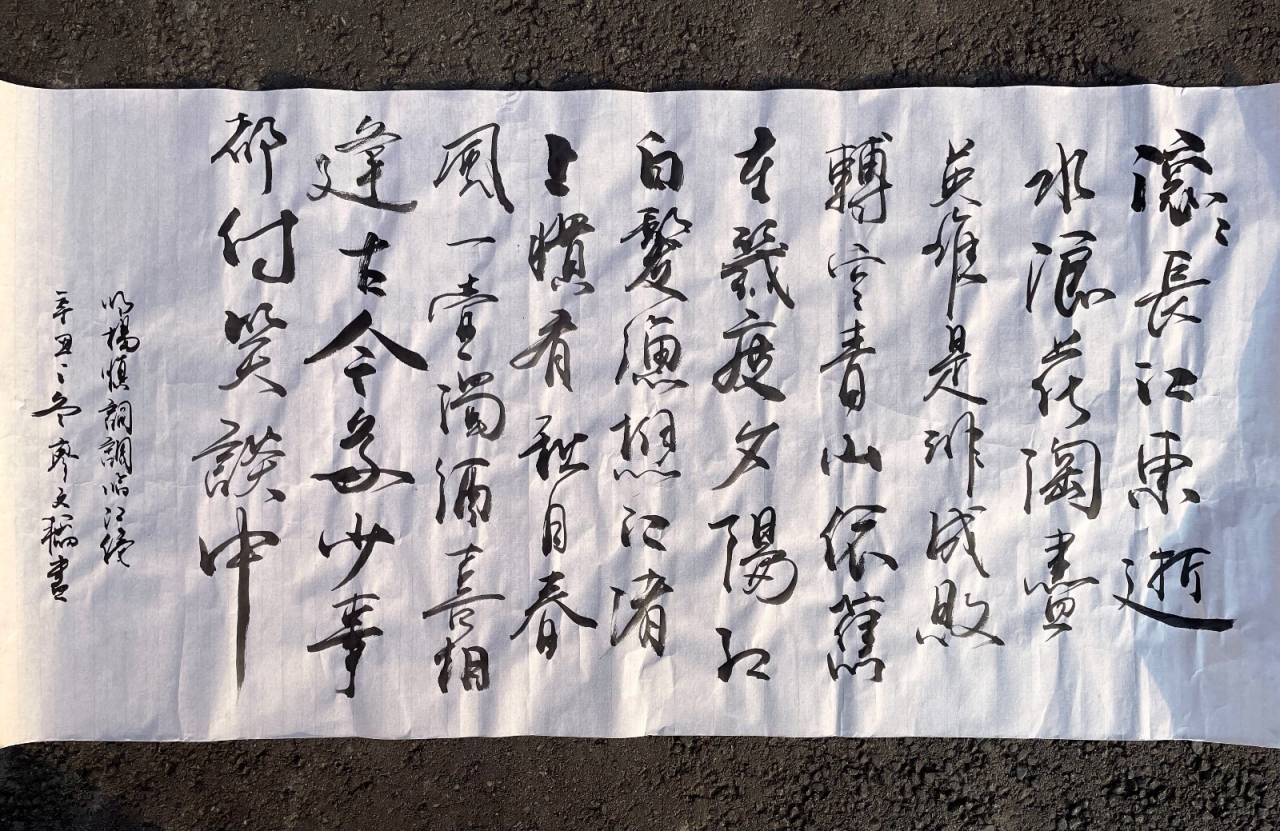 滾〻長江東逝
水浪花淘盡
英雄是非成敗
轉空青山依舊
在幾度夕陽紅
白髮漁樵江渚
上慣看秋月春
風一壺濁酒喜相
逢古今多少事
都付笑談中
明楊慎詞調臨江僊
辛丑〻冬廖文
書